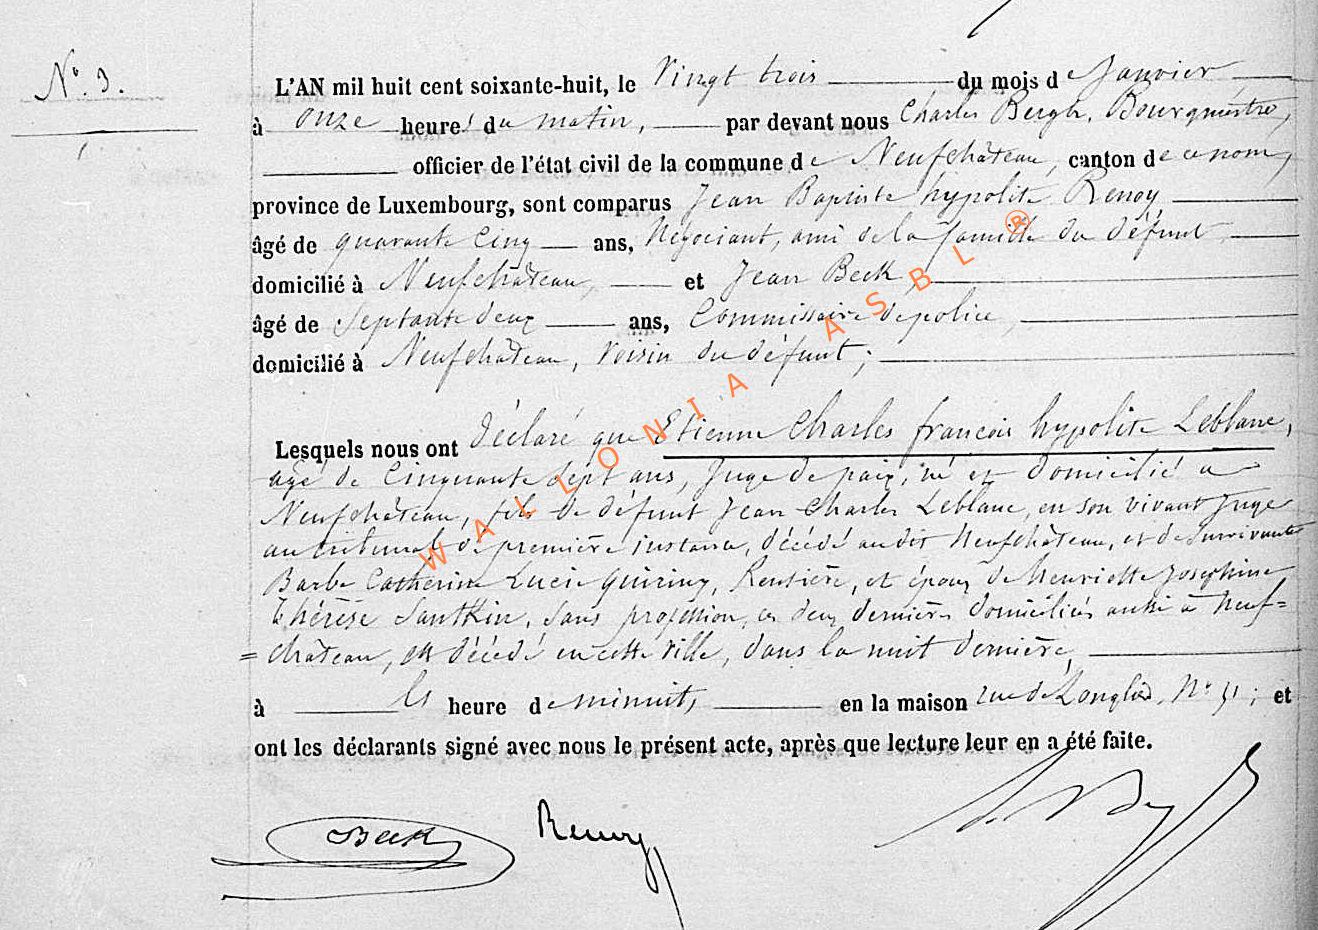 N° 3.
L'AN mil huit cent soixante-huit, le Vingt trois du mois de Janvier
à onze heures du matin, par devant nous Charles Bergh, Bourgmestre,
officier de l'état civil de la commune de Neufchâteau, canton de ce nom,
province de Luxembourg, sont comparus Jean Baptiste hypolite Renoy
âgé de quarante cinq ans, Négociant, ami de la famille du défunt,
domicilié à Neufchâteau, et Jean Beck,
âgé de Septante deux ans, Commissaire de police,
domicilié à Neufchâteau, Voisin du défunt;
Lesquels nous ont déclaré que Etienne Charles françois hypolite Leblanc,
âgé de Cinquante sept ans, Juge de paix, né et domicilié à
Neufchâteau, fils de défunt Jean Charles Leblanc, en son vivant Juge
au tribunal de première instance, décédé audit Neufchâteau, et de survivante
Barbe Catherine Lucie Quiriny, Rentière, et époux de Henriette Josephine
Thérèse Santkin, sans profession, ces deux dernières domiciliées aussi à Neuf=
=château, est décédé en cette ville, dans la nuit dernière,
à heure de minuit, en la maison rue de Longlier, N° 51; et
ont les déclarants signé avec nous le présent acte, après que lecture leur en a été faite.
Beck Renoy
WALLONIA ASBL ®